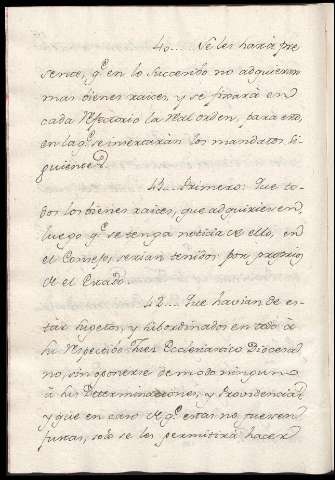 40... Se les haria pre
sente, q.e en lo succesido no adquieran
mas bienes raices, y se fixará en
cada Refectorio la Real orden, para esto,
en la q.e se incertarán los mandatos si-
guientes.
41... Primero: Que to-
dos los bienes raices, que adquiriesen,
luego q.e se tenga noticia de ello, en
el Consejo, serian tenidos por proprios
de el Estado.
42... Que havian de es-
tár sugetos, y subordinados en todo à
su Respectibo Juez Ecclesiastico Diocesa-
no, sin oponerse de modo ninguno
à sus Determinaciones, y Providencias,
y que en caso de q.e estas no fuesen
justas, solo se les permitirá hacer